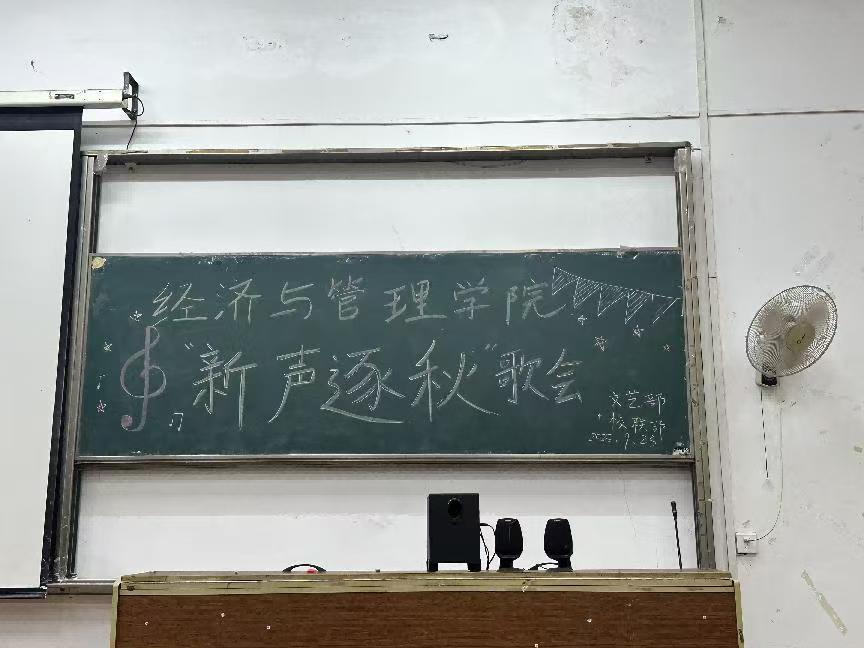 经济与管理学院
“新声逐秋”歌会
文艺部
校联部
2025.9.23